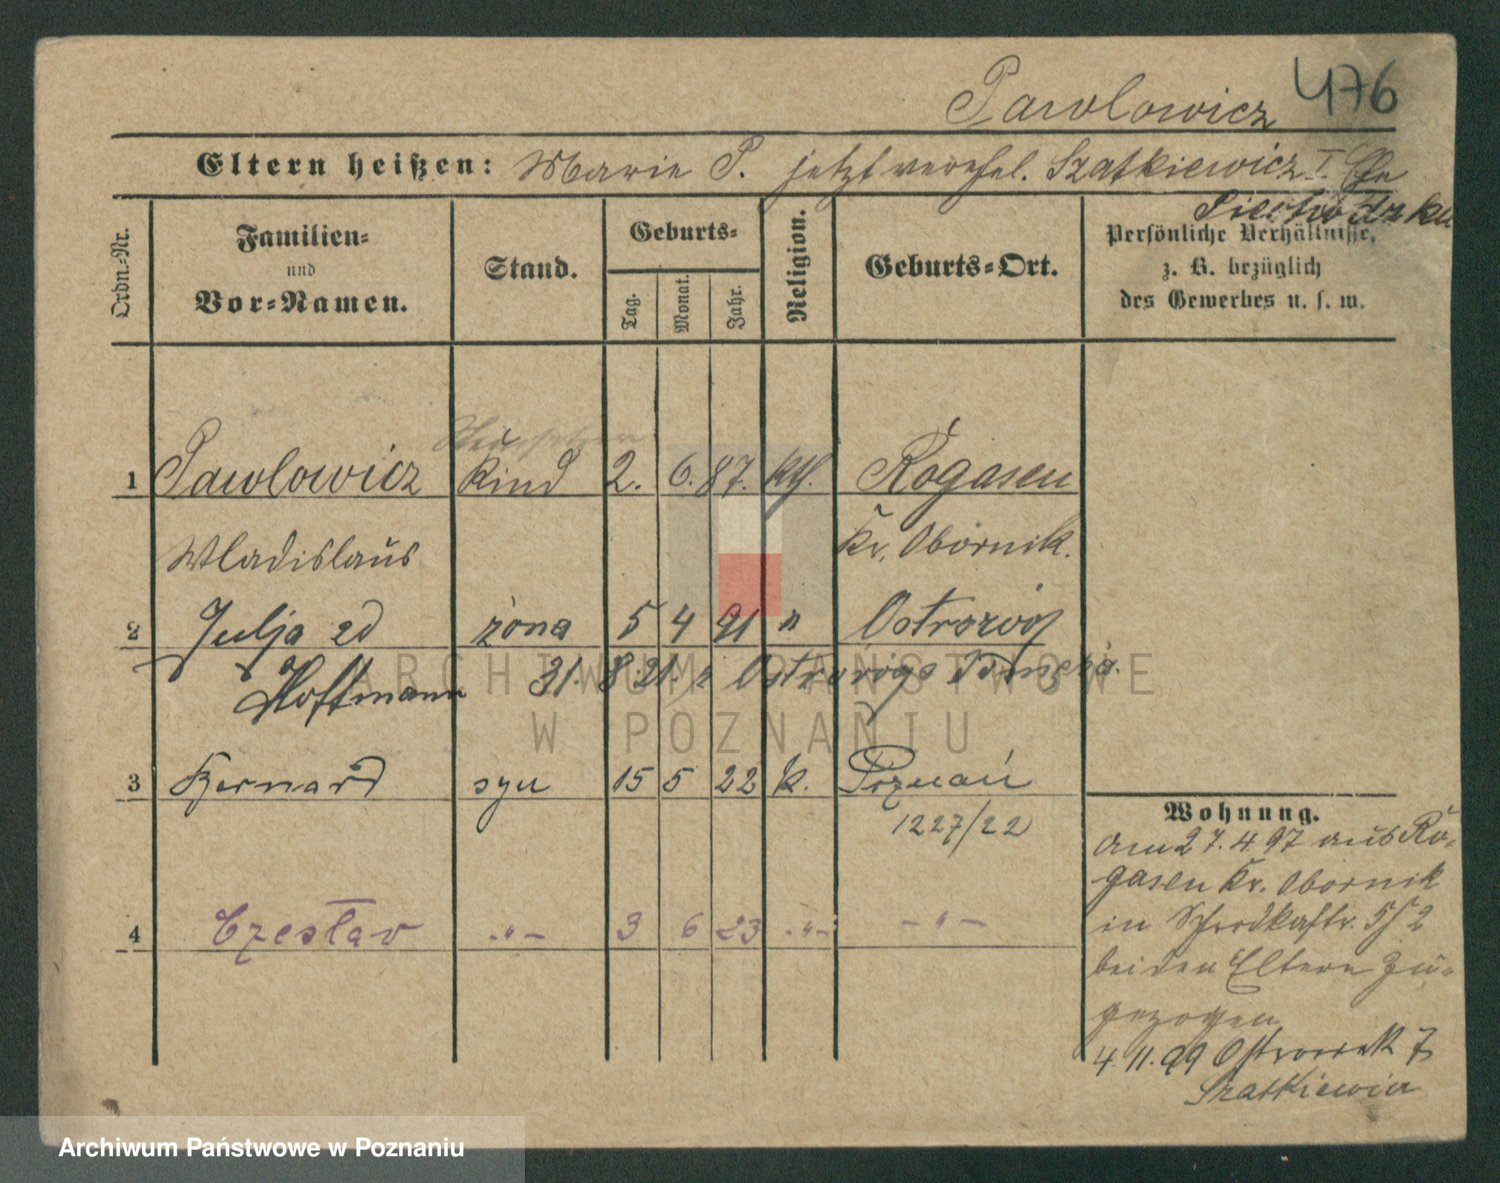 Pawlowicz 476
Eltern heißen: Marie P. jetzt verehel. Szatkiewicz I. Ehe
Ordn.-Nr.
Familien-
und
Vor-Namen.
Stand.
Geburts-
Tag.
Monat.
Jahr.
Religion.
Geburts-Ort.
Persönliche Verhältnisse,
z. B. bezüglich
des Gewerbes u. s. w.
1 Pawlowicz Kind 2. 6. 87. kth. Rogasen
Wladislaus Kr. Obornik.
2 Julja zd żona 5 4 91 " Ostroróg
Hoffmann 31. 8. 21. z Ostroroga
3 Bernard syn 15 5 22 k. Poznań
1227/22
4 Czesław -"- 3 6 23 -"- -"-
Wohnung.
am 27. 4 97 aus Ro-
gasen Kr. Obornik
in Schrodkastr. 5/2
bei den Eltern zu-
gezogen
4. 11. 99 Ostrowek 7
Szatkiewicz
ARCHIWUM PAŃSTWOWE
W POZNANIU
Archiwum Państwowe w Poznaniu